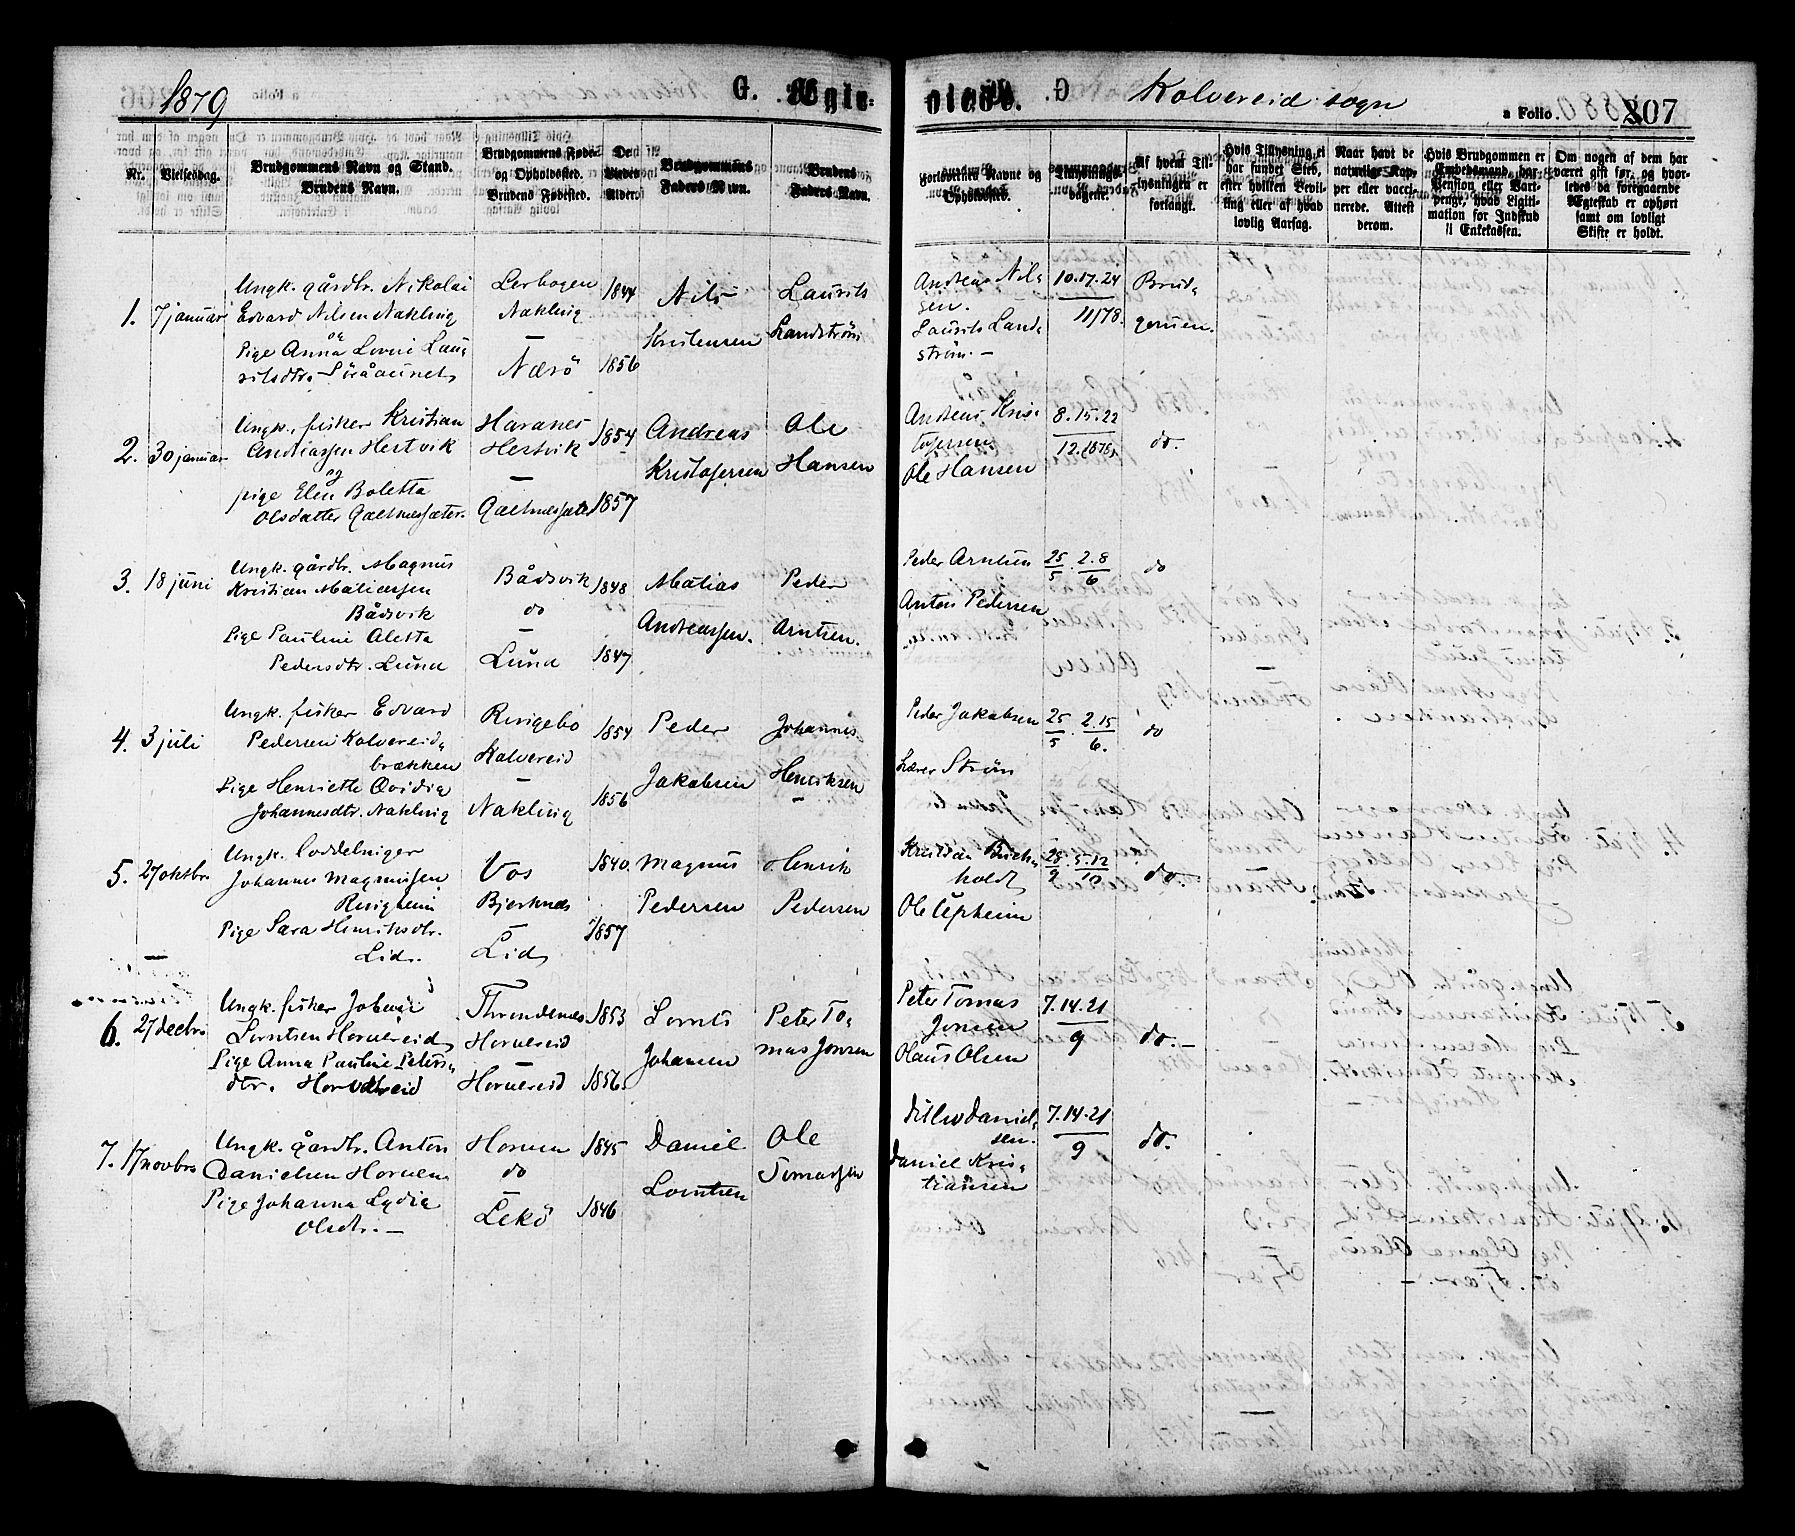 1879
G. Ægte-
viede.
Kolvereid sogn
a Folio.
207
Nr.
Vielsesdag.
Brudgommens Navn og Stand.
Brudens Navn.
Brudgommens Føde-
og Opholdssted.
Brudens Fødested.
Brudgommens
Faders Navn.
Brudens
Faders Navn.
Forlovernes Navne og
Opholdssted.
Af hvem Til-
lysningen er
forlangt.
Hvis Tillysning ei
har fundet Sted,
efter hvilken Bevil-
ling eller af hvad
lovlig Aarsag.
Naar havt de
naturlige Kop-
per eller vacci-
nerede. Attest
derom.
Hvis Brudgommen er
Embedsmand, har
Pension eller Vart-
penge, hvad Ligiti-
mation for Indskud
i Enkekassen.
Om nogen af dem har
været gift før, og hvor-
ledes da foregaaende
Ægteskab er ophørt
samt om lovligt
Skifte er holdt.
1. 7 januar
Ungk. gårdbr. Nikolai
Edvard Nilsen Nakling
og
Pige Anna Lovise Lau-
ritsdtr.
Lerbogen
Nakling
—
Nærö
1844
1856
Nils
Kristensen
Laurits
Landström
Andreas Nil-
sen.
Laurits Land-
ström. —
10.17.24
11/78.
Brud-
gommen.
2. 30 januar
Ungk. fisker Kristian
Andreassen Hestvik
og
pige Elen Boletta
Olsdatter
Haranes
Hestvik
—
1854
1857
Andreas
Kristofersen
Ole
Hansen
Andreas Kris-
tofersen
Ole Hansen
8.15.22
12.1878.
do.
3. 18 juni
Ungk. gårdbr. Magnus
Kristian Matiassen
Bådsvik
Pige Pauline Aletta
Pedersdtr. Lund
Bådsvik
do
—
Lund
1848
1847
Matias
Andreassen.
Peder
Arntsen.
Peder Arntsen
Anton Pedersen
25/5 . 2.8/6
do
4. 3 juli
Ungk. fisker Edvard
Pedersen Kolvereid-
brækken
Pige Henriette Ovidia
Johannesdtr. Nakling
Ringebo
Kolvereid
—
Nakling
1854
1856
Peder
Jakobsen
Johannes
Henriksen
Peder Jakobsen
Lærer Strøm
25/5 . 2.15/6.
do
5. 27 oktbr.
Ungk.
Johannes Magnussen
Ringheim
Pige Sara Henriksdtr.
Lid.
Vos
Bjerknes
—
Lid
1840.
1857
Magnus
Pedersen
Henrik
Pedersen
Kristian Buch-
holdt
Ole Opheim
28/9 . 5.12/10
do.
6. 27 decbr.
Ungk. fisker Johan
Lorntsen Hornereid
Pige Anna Pauline Peters-
dtr. Hornereid
Throndenes
Hornereid
—
Hornereid
1853
1856
Lornts
Johansen
Peter To-
mas Jonsen
Peter Tomas
Jonsen
Olaus Olsen
7.14.21
9
do. —
7. 17 novbr.
Ungk. gårdbr. Anton
Danielsen Hornen
Pige Johanna Lydia
Olsdtr. —
Hornen
do
—
Lekö
1845
1846
Daniel
Lorntsen
Ole
Tomassen
Ditlev Daniel-
sen.
Daniel Kris-
tiansen
7.14.21
9
do.